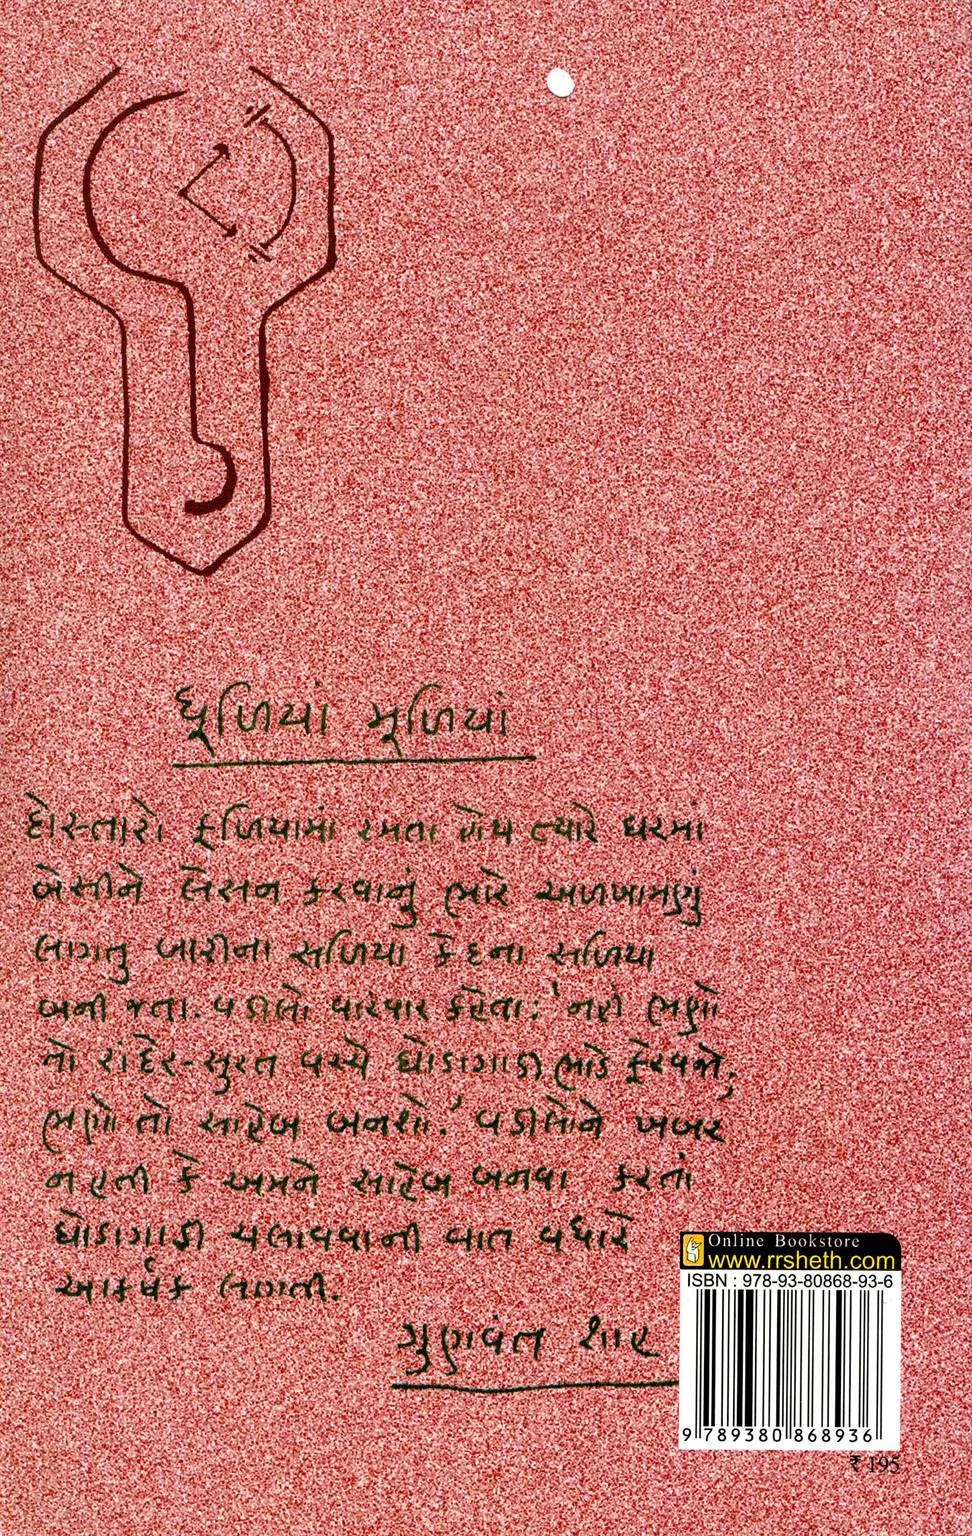 ધૂળિયાં મૂળિયાં
દોસ્તારો ફળિયામાં રમતા હોય ત્યારે ઘરમાં
બેસીને લેસન કરવાનું ભારે અળખામણું
લાગતું બારીના સળિયા કેદના સળિયા
બની જતા. વડીલો વારંવાર કહેતા: 'નહીં ભણો
તો રાંદેર-સુરત વચ્ચે ઘોડાગાડી ભાડે ફેરવજો,
ભણો તો સાહેબ બનશો.' વડીલોને ખબર
ન હતી કે અમને સાહેબ બનવા કરતાં
ઘોડાગાડી ચલાવવાની વાત વધારે
આકર્ષક લાગતી.
ગુણવંત શાહ
Online Bookstore
www.rrsheth.com
ISBN : 978-93-80868-93-6
9 789380 868936
₹ 195